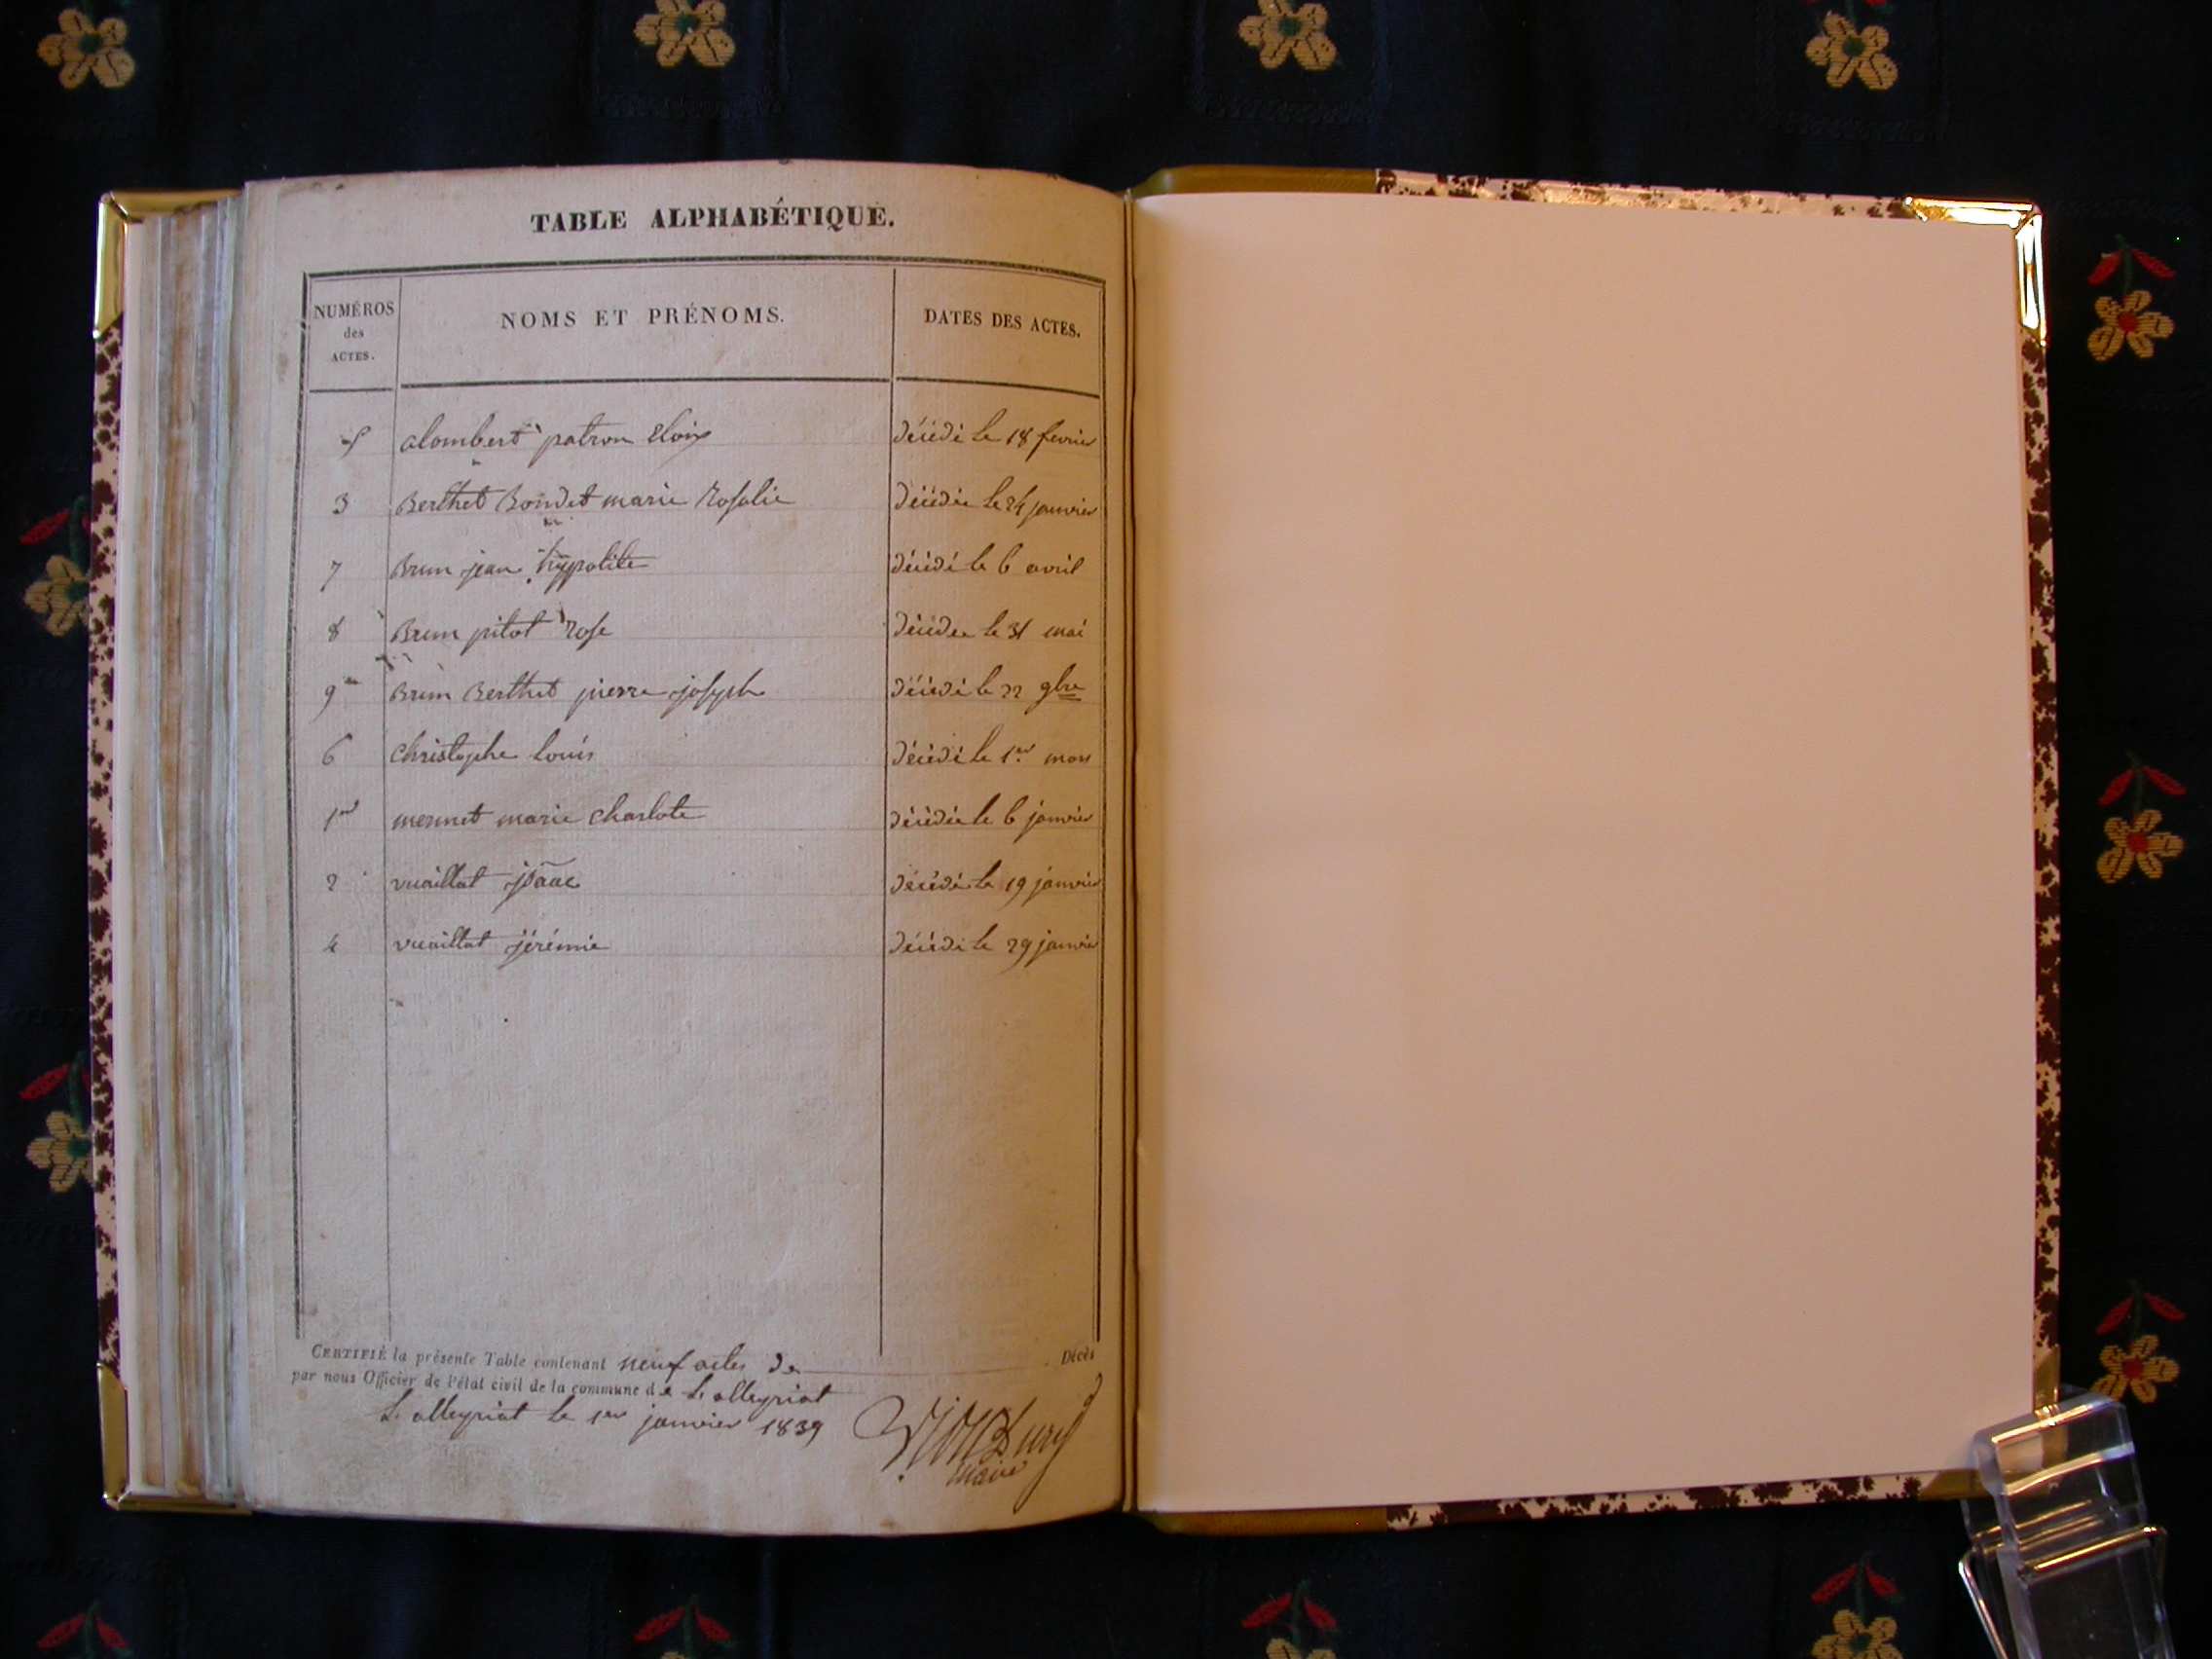 TABLE ALPHABÉTIQUE.
NUMÉROS des ACTES. NOMS ET PRÉNOMS. DATES DES ACTES.
5 alombert patron Eloix décédé le 18 fevrier
3 Berthet Bondet marie Rosalie décédée le 24 janvier
7 Brun jean hyppolite décédé le 6 avril
8 Brun pitot Rose décédée le 31 mai
9 Brun Berthet pierre joseph décédé le 22 9bre
6 christophe louis décédé le 1er mars
1er mermet marie charlote décédée le 6 janvier
2 vuaillat isaac décédé le 19 janvier
4 vuaillat jérémie décédé le 29 janvier
CERTIFIÉ la présente Table contenant neuf actes de Décès
par nous Officier de l'état civil de la commune de L. alleyriat
L. alleyriat le 1er janvier 1839
maire